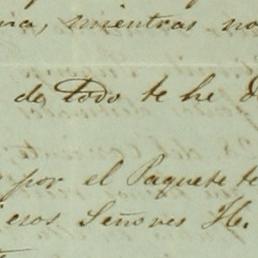 na, mientras no
de todo te he
por el Paquete te
esos Señores H.